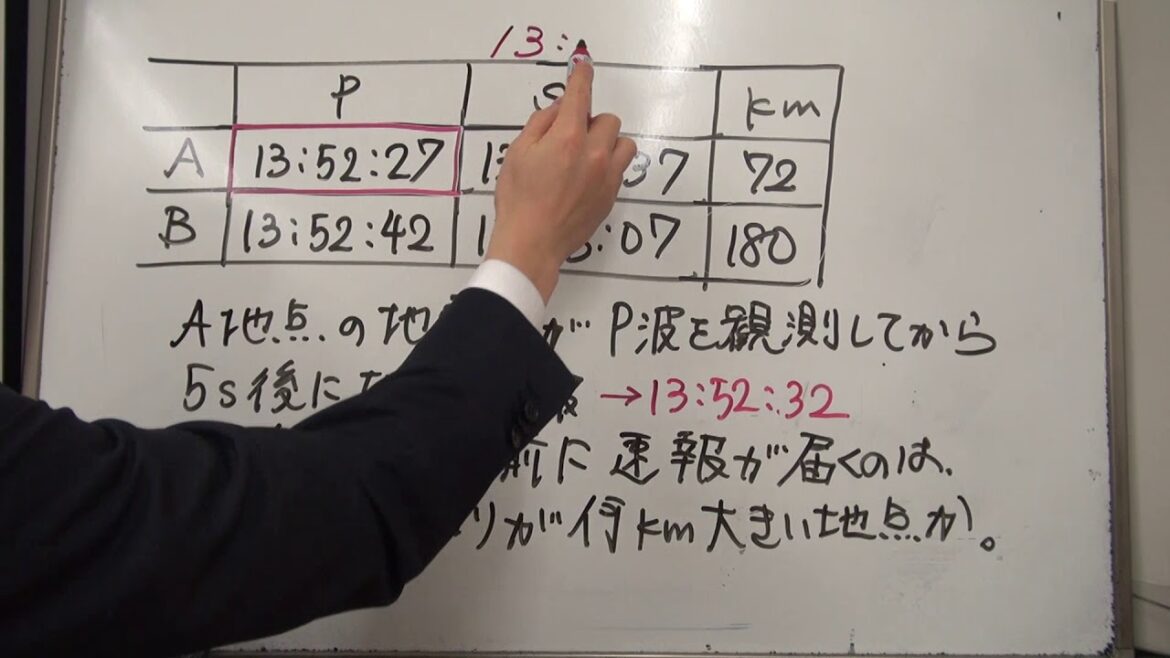 13:
P S km
A 13:52:27 13 37 72
B 13:52:42 1 :07 180
A地点の地 がP波を観測してから
5s後に 報 →13:52:32
前に速報が届くのは、
りが何km大きい地点か。